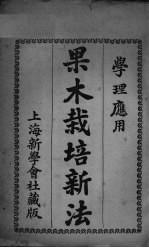 學理應用
果木栽培新法
上海新學會社藏版